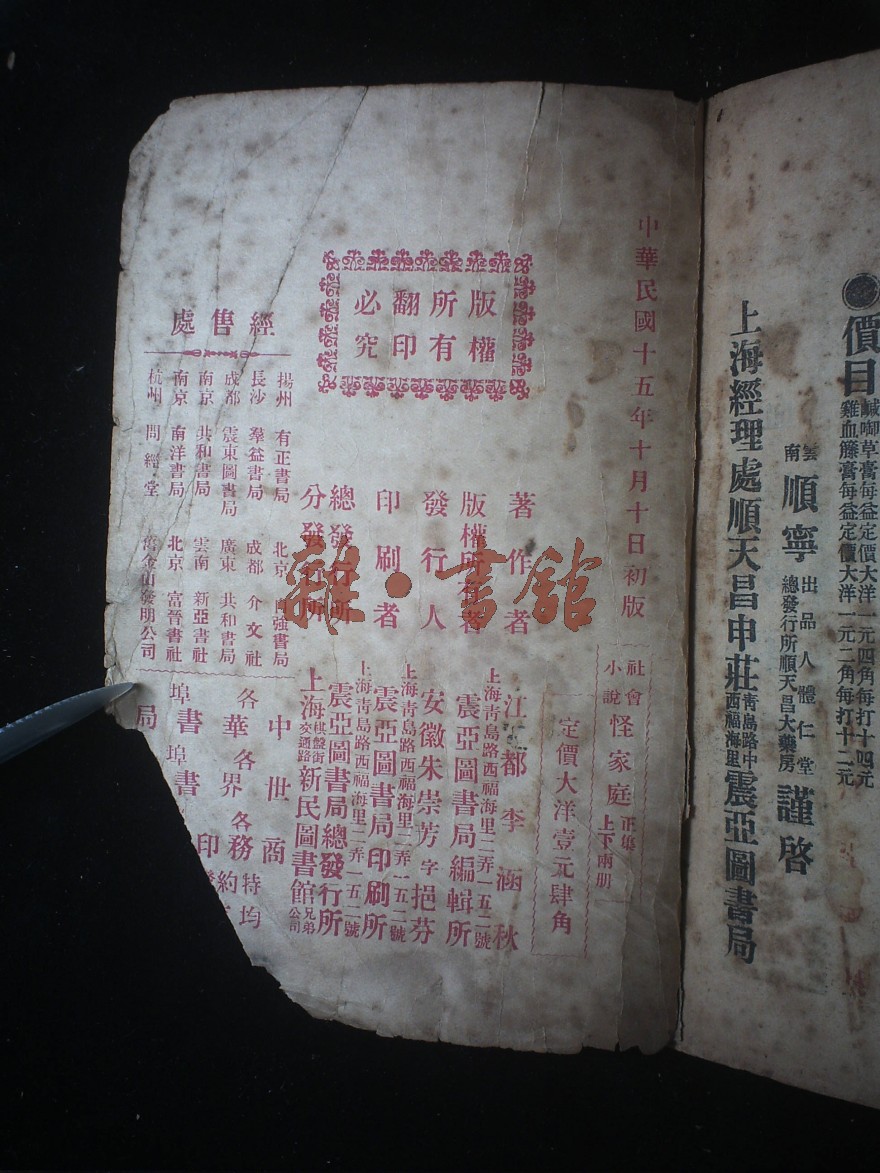 ●價目
鹹唧草膏每益定價大洋一元四角每打十四元
雞血籐膏每益定價大洋一元二角每打十二元
雲南順寧
出品人體仁堂
總發行所順天昌大藥房
謹啓
上海經理處順天昌申莊青島路中西福海里震亞圖書局
中華民國十五年十月十日初版
社會小說 怪家庭 正集 上下兩册
定價大洋壹元肆角
版權所有翻印必究
著作者 江都李涵秋
版權所有者 上海青島路西福海里二弄一五二號 震亞圖書局編輯所
發行人 安徽朱崇芳字挹芬
印刷者 上海青島路西福海里二弄一五二號 震亞圖書局印刷所
總發行所 上海青島路西福海里二弄一五二號 震亞圖書局總發行所
分發行所 上海棋盤街交通路新民圖書館兄弟公司
經售處
揚州 有正書局 北京 自強書局
長沙 羣益書局 成都 介文社
成都 震東圖書局 廣東 共和書局
南京 共和書局 雲南 新亞書社
南京 南洋書局 北京 富晉書社
杭州 問經堂 舊金山發明公司
中世商務印
各華各界各特約
各埠書均
埠書局
雜·書館